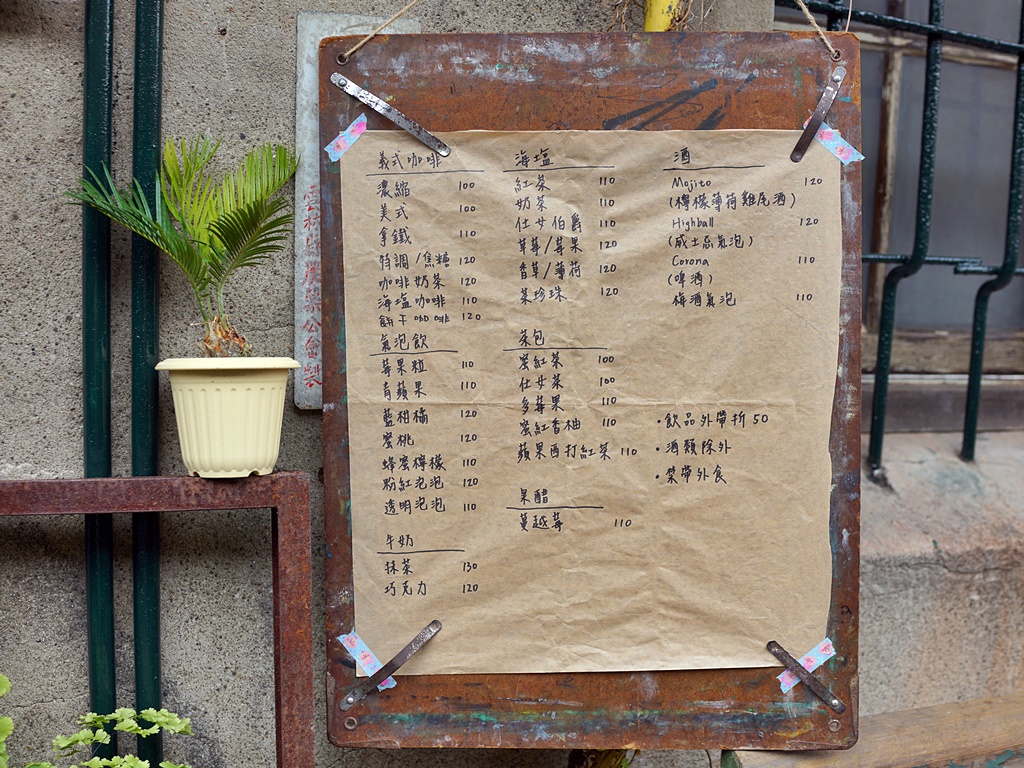 義式咖啡
濃縮 100
美式 100
拿鐵 110
特調/焦糖 120
咖啡奶茶 120
海塩咖啡 110
餅干咖啡 120
氣泡飲
莓果粒 110
青蘋果 110
藍柑橘 120
蜜桃 120
蜂蜜檸檬 110
粉紅泡泡 120
透明泡泡 110
牛奶
抹茶 130
巧克力 120
海塩
紅茶 110
奶茶 110
仕女伯爵 110
草莓/莓果 120
香草/薄荷 120
茶珍珠 120
茶包
蜜紅茶 100
仕女茶 100
多莓果 110
蜜紅香柚 110
蘋果西打紅茶 110
果醋
蔓越莓 110
酒
Mojito 120
(檸檬薄荷雞尾酒)
Highball 120
(威士忌氣泡)
Corona 110
(啤酒)
梅酒氣泡 110
·飲品外帶折50
·酒類除外
·禁帶外食